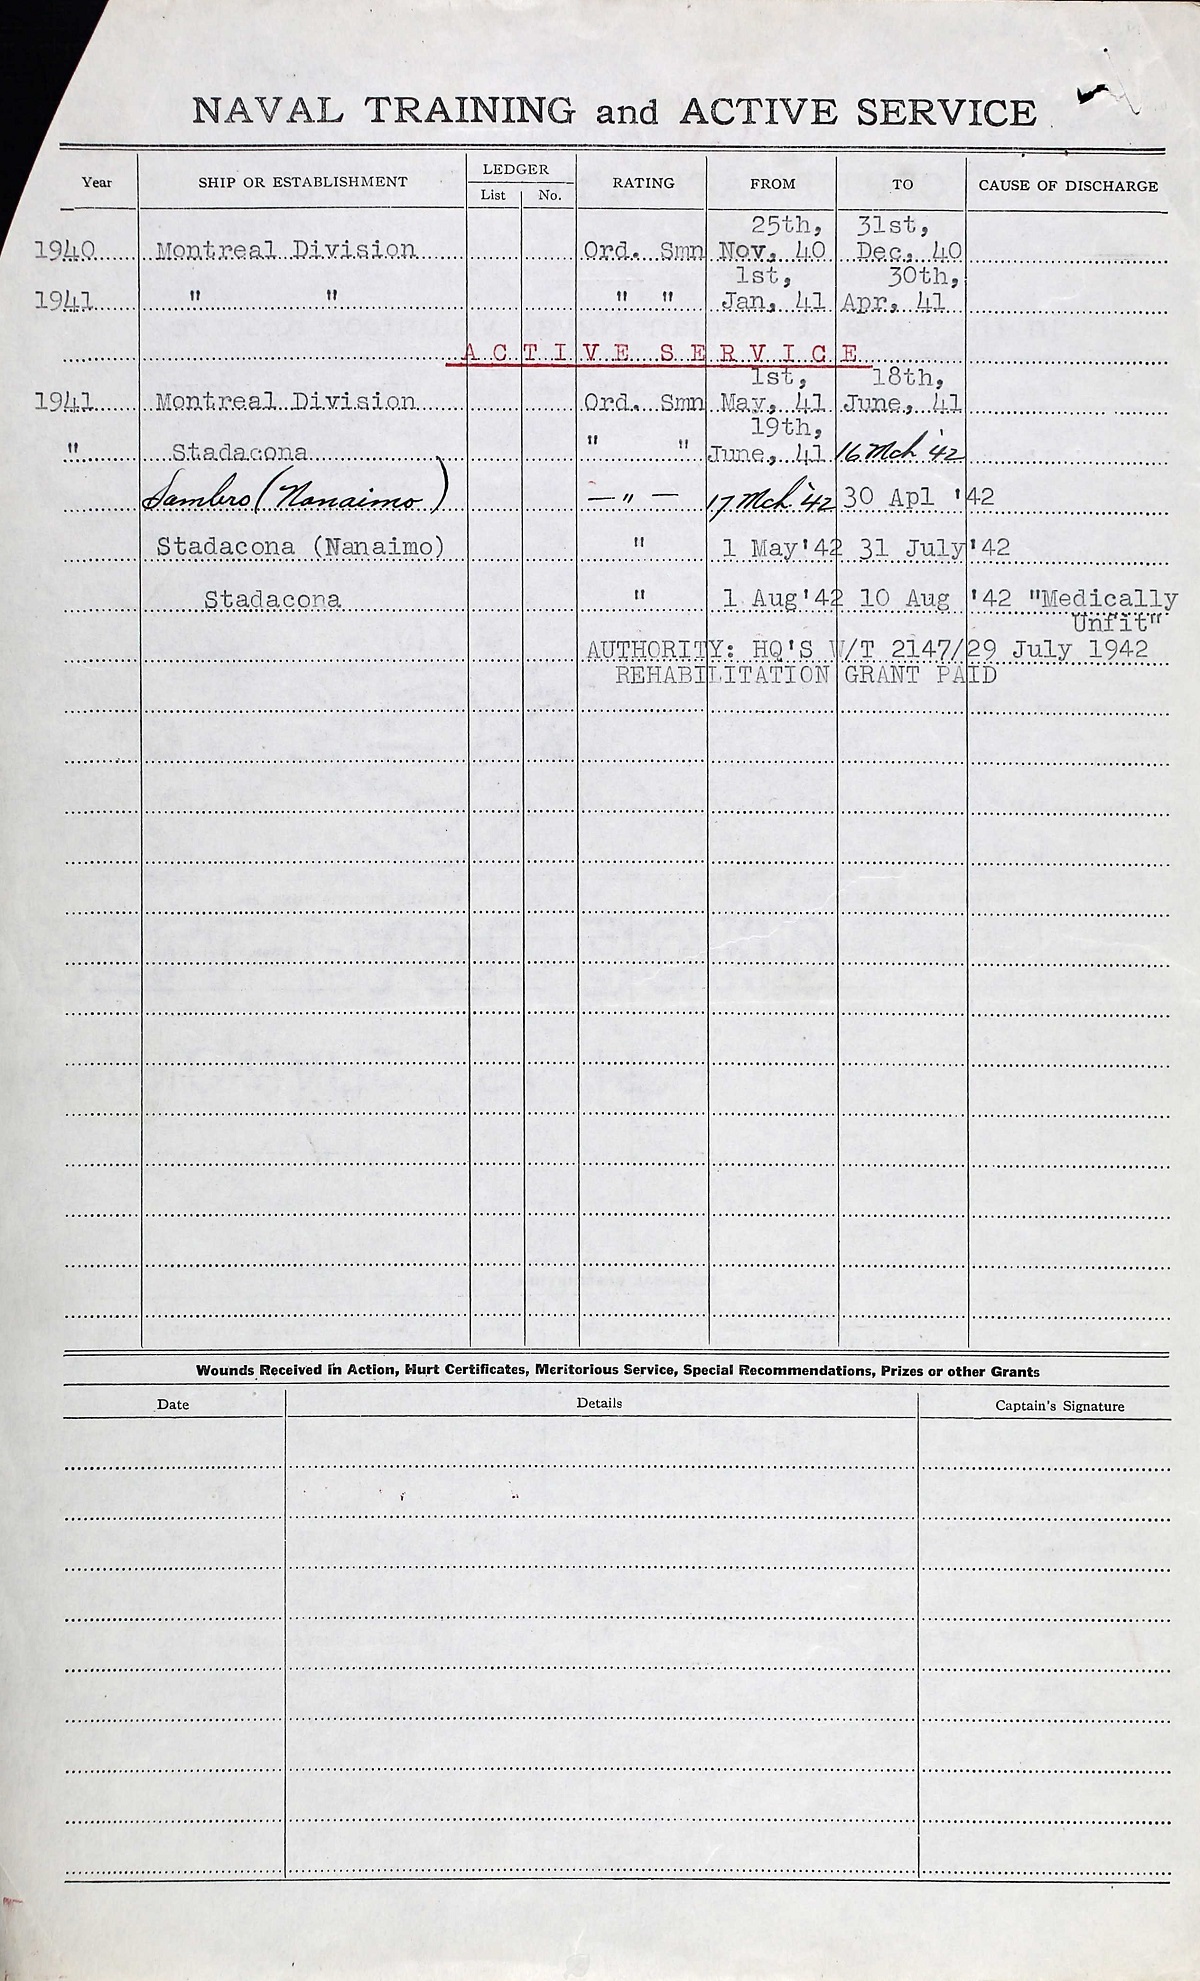 NAVAL TRAINING and ACTIVE SERVICE
Year SHIP OR ESTABLISHMENT LEDGER List No. RATING FROM TO CAUSE OF DISCHARGE
25th, 31st,
1940 Montreal Division Ord. Smn Nov, 40 Dec, 40
1st, 30th,
1941 " " " " Jan, 41 Apr, 41
ACTIVE SERVICE
1st, 18th,
1941 Montreal Division Ord. Smn May, 41 June, 41
19th,
" Stadacona " " June, 41 16 Mch '42
Sambro (Nanaimo) — " — 17 Mch '42 30 Apl '42
Stadacona (Nanaimo) " 1 May'42 31 July'42
Stadacona " 1 Aug'42 10 Aug '42 "Medically
Unfit"
AUTHORITY: HQ'S W/T 2147/29 July 1942
REHABILITATION GRANT PAID
Wounds Received in Action, Hurt Certificates, Meritorious Service, Special Recommendations, Prizes or other Grants
Date Details Captain's Signature